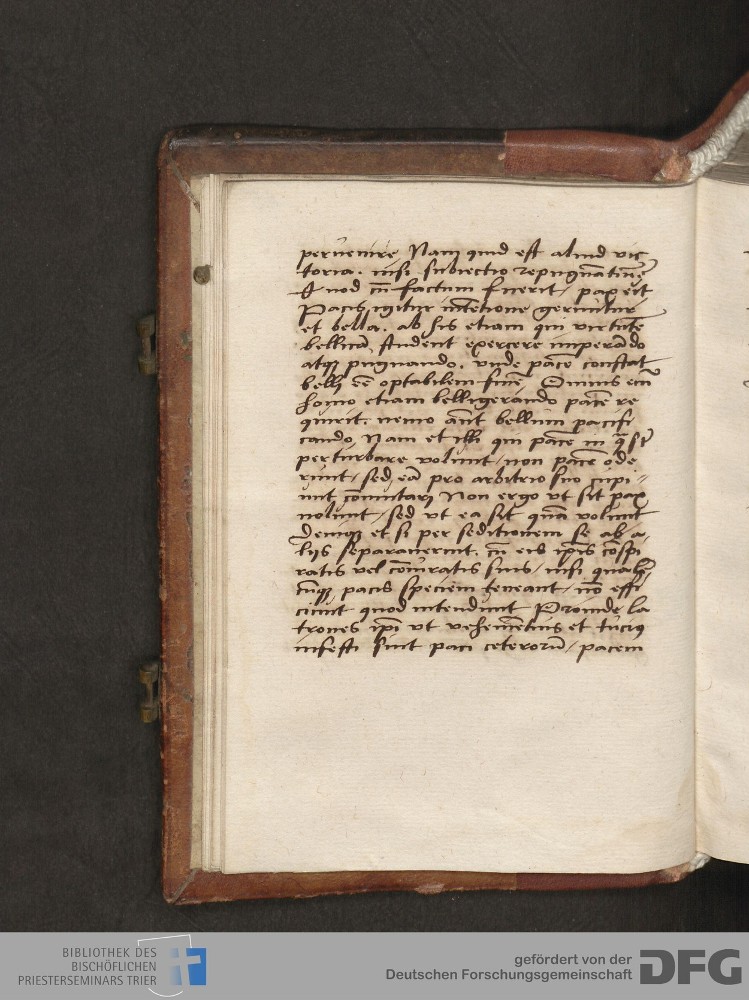 peruenire, Nam quid est aliud vic
toria. nisi subiectio repugnātiū,
Quod cū factum fuerit, pax erit
Pacis igitur intētione geruntur
et bella. ab his etiam qui virtutē
bellicā student exercere imperādo
atqꝫ pugnando. vnde pacē constat
belli eē optabilem finē, Omnis em̄
homo etiam belligerando pacē re
quirit. nemo aūt bellum pacifi
cando, Nam et illi qui pacē in q̄ sūt
perturbare volunt, non pacē ode
runt, sed eā pro arbitrio suo cupi
unt cōmutari Non ergo vt sit pax
nolunt, sed vt ea sit quā volunt
Deniqꝫ et si per seditionem se ab a
liis separauerint. cū eis ipīs cōspi
ratis vel cōiuratis suis, nisi qualē
cūqꝫ pacis speciem teneant, nō effi
ciunt quod intendunt Proinde la
trones ipī vt vehemētius et tucius
infesti sint paci ceterorū, pacem
BIBLIOTHEK DES
BISCHÖFLICHEN
PRIESTERSEMINARS TRIER
gefördert von der
Deutschen Forschungsgemeinschaft
DFG